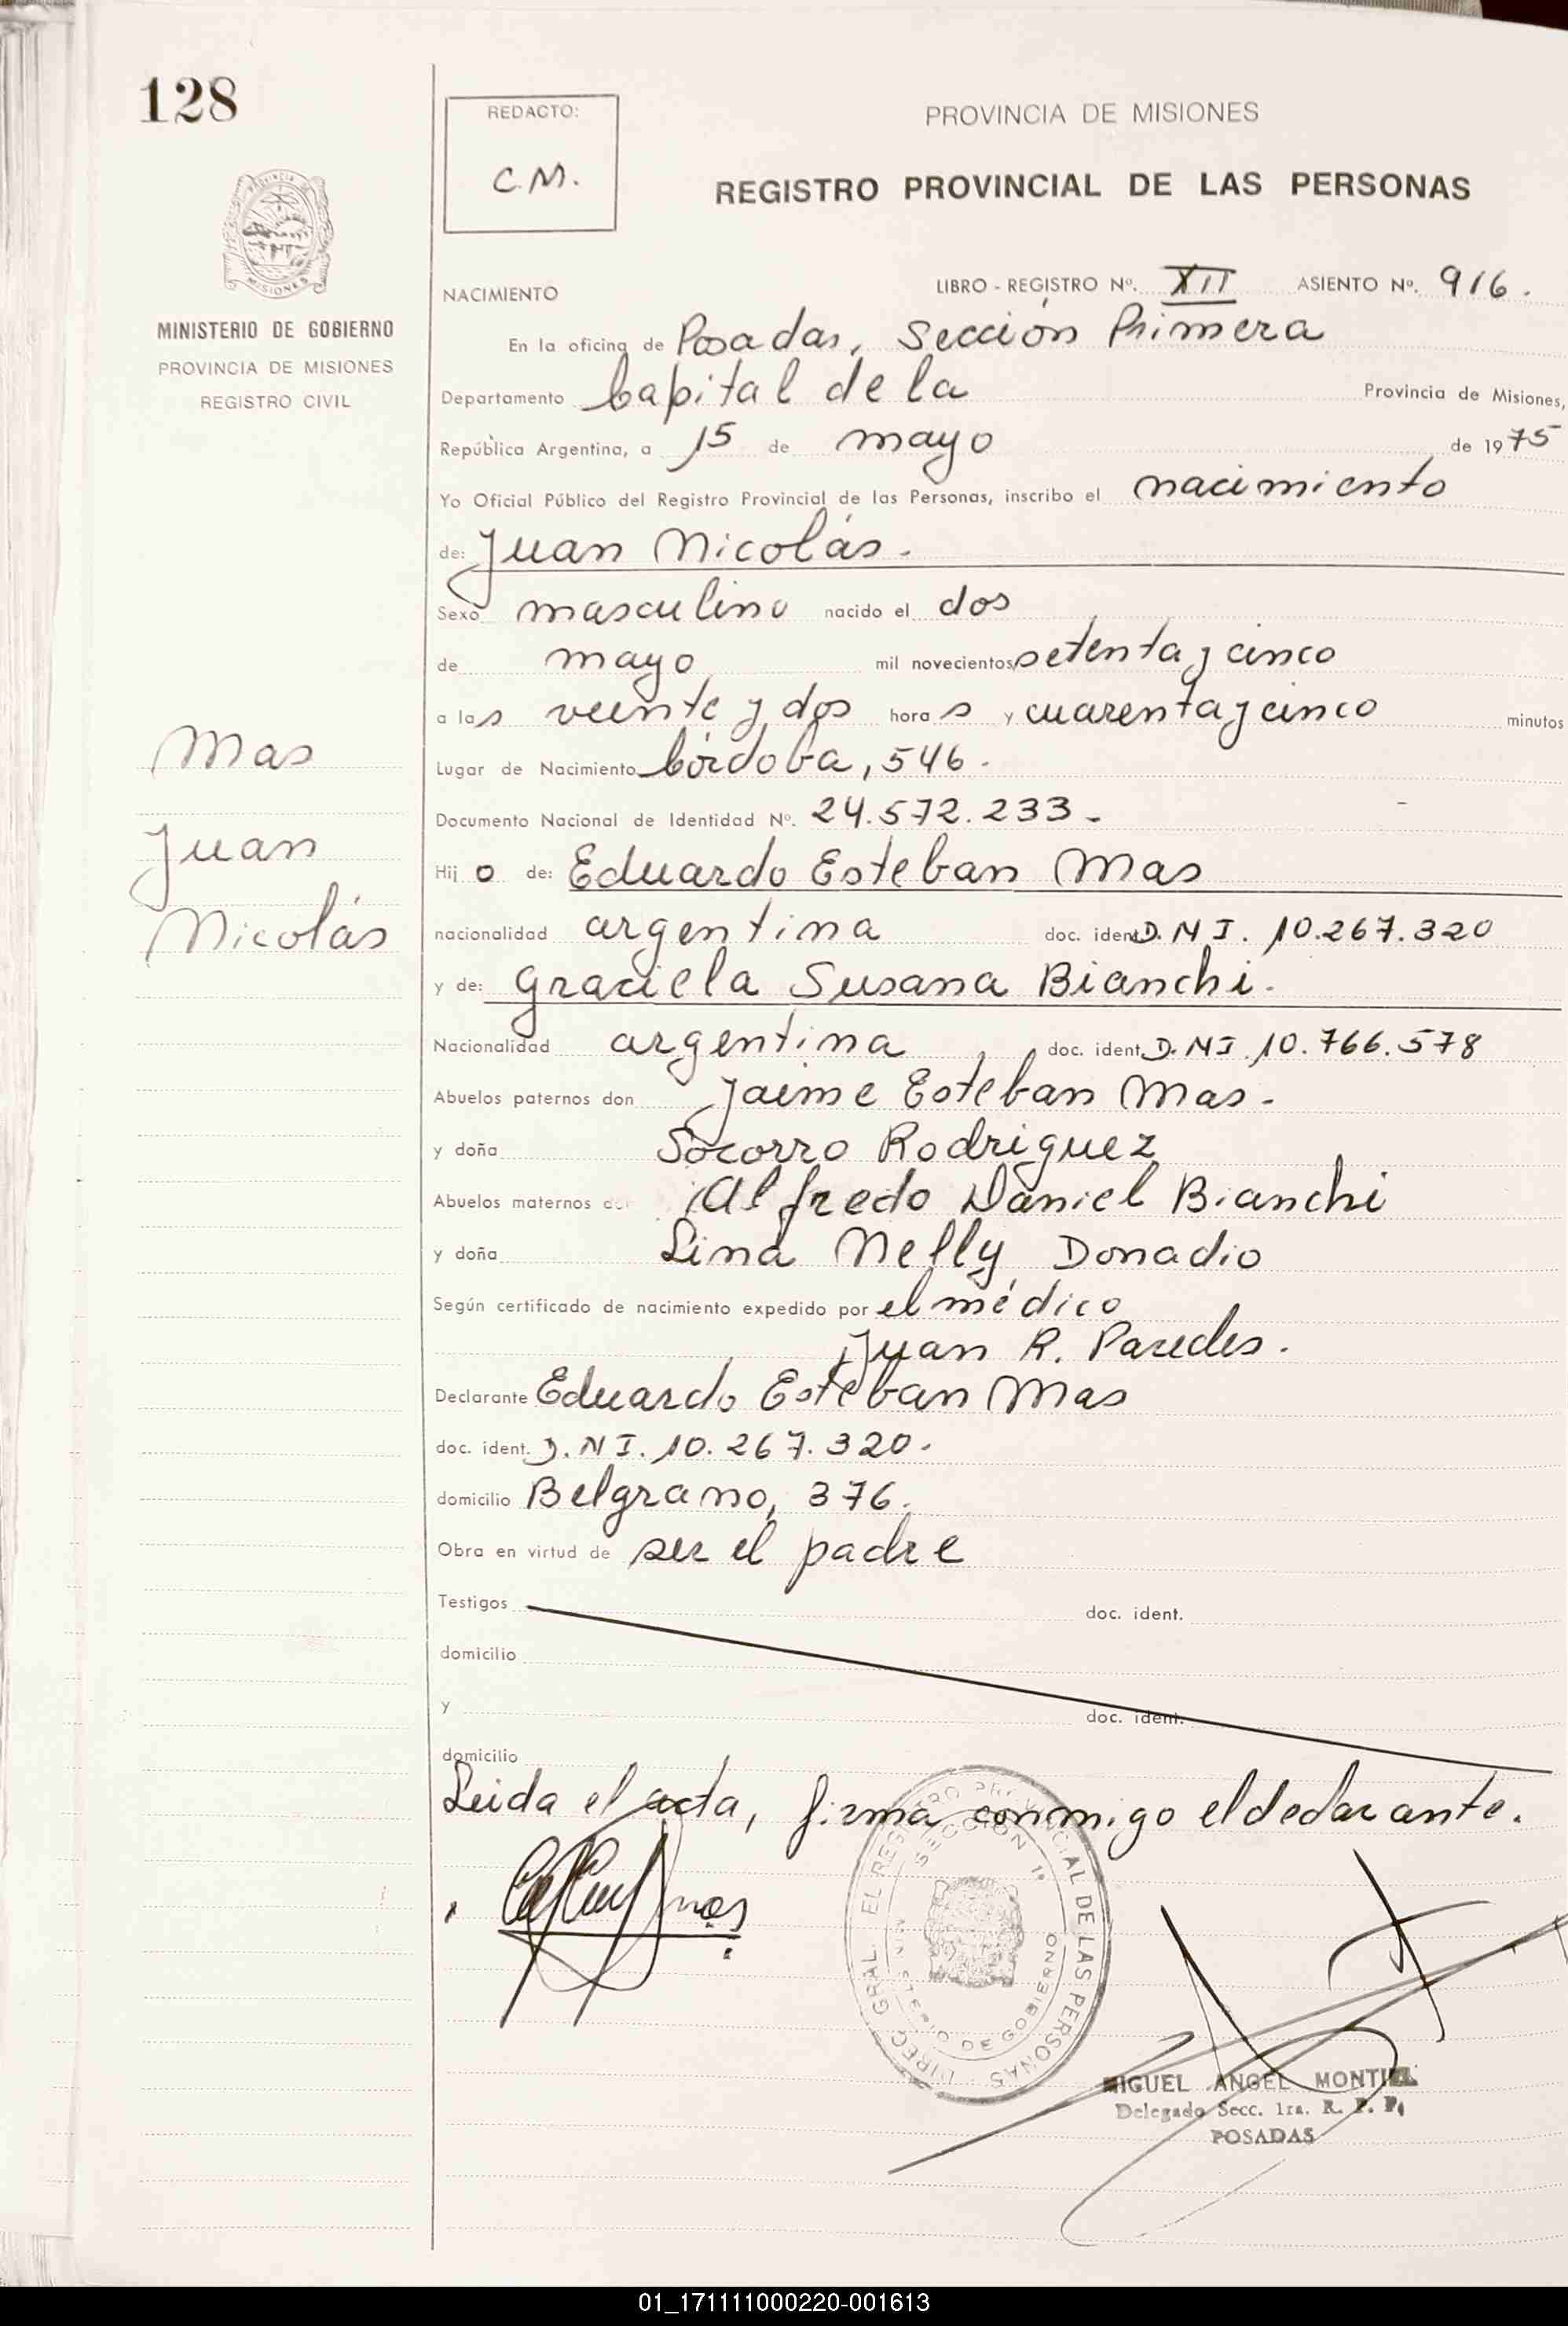 128
REDACTO:
C.M.
PROVINCIA DE MISIONES
REGISTRO PROVINCIAL DE LAS PERSONAS
MISIONES
MINISTERIO DE GOBIERNO
PROVINCIA DE MISIONES
REGISTRO CIVIL
NACIMIENTO LIBRO - REGISTRO Nº. XII ASIENTO Nº. 916.
En la oficina de Posadas, Sección Primera
Departamento Capital de la Provincia de Misiones,
República Argentina, a 15 de mayo de 1975
Yo Oficial Público del Registro Provincial de las Personas, inscribo el nacimiento
de: Juan Nicolás.
Sexo masculino nacido el dos
de mayo mil novecientos setenta y cinco
a las veinte y dos horas y cuarenta y cinco minutos
Lugar de Nacimiento Córdoba, 546.
Documento Nacional de Identidad Nº. 24.572.233.
Hijo de: Eduardo Esteban Mas
nacionalidad argentina doc. ident. D.N I. 10.267.320
y de: Graciela Susana Bianchi.
Nacionalidad argentina doc. ident. D.NI. 10.766.578
Abuelos paternos don Jaime Esteban Mas.
y doña Socorro Rodríguez
Abuelos maternos don Alfredo Daniel Bianchi
y doña Lina Nelly Donadio
Según certificado de nacimiento expedido por el médico
Juan R. Paredes.
Declarante Eduardo Esteban Mas
doc. ident. D.N I. 10.267.320.
domicilio Belgrano, 376.
Obra en virtud de ser el padre
Testigos doc. ident.
domicilio
y doc. ident.
domicilio
Leida el acta, firma conmigo el declarante.
Mas
Juan
Nicolás
DIREC. GRAL. EL REGISTRO PROVINCIAL DE LAS PERSONAS
SECCION 1ª
MINISTERIO DE GOBIERNO
MIGUEL ANGEL MONTIEL
Delegado Secc. 1ra. R. P. P.
POSADAS
01_171111000220-001613